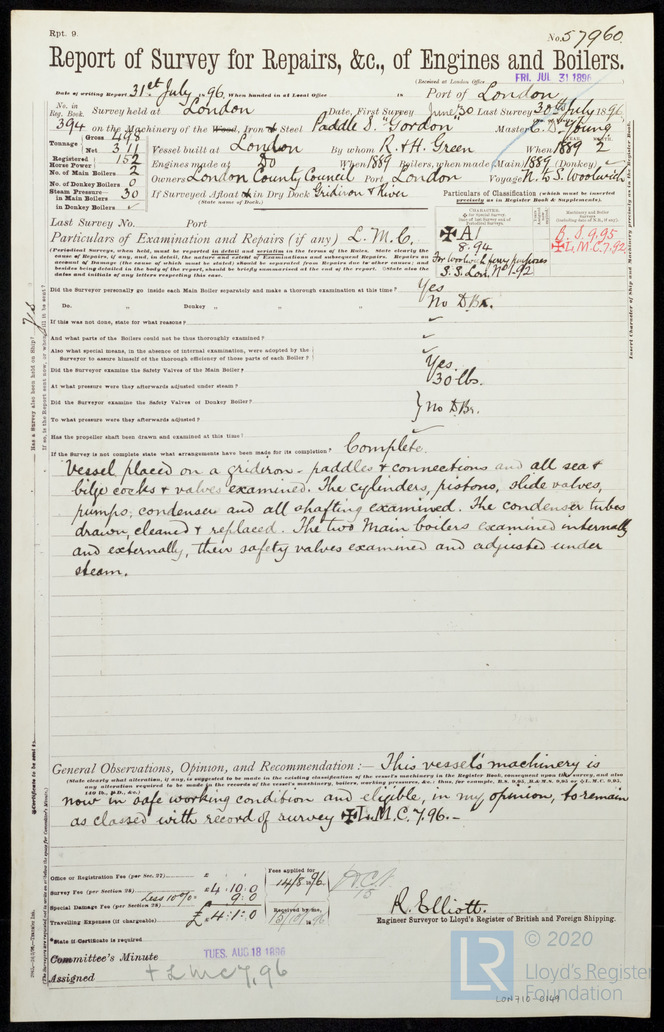 Rpt. 9.
No. 57960.
Report of Survey for Repairs, &c., of Engines and Boilers.
(Received at London Office FRI. JUL 31 1896)
Date of writing Report 31st July 1896. When handed in at Local Office 18 Port of London
No. in Reg. Book. Survey held at London Date, First Survey June 30 Last Survey 30th July 1896
394 on the Machinery of the Wood, Iron or Steel Paddle S. "Gordon" Master C. D. Young
Tonnage Gross 498
Net 311 Vessel built at London By whom R. & H. Green When 1889 2
Registered Horse Power 152 Engines made at Do When 1889 Boilers, when made (Main) 1889 (Donkey) ✓
No. of Main Boilers 2
No. of Donkey Boilers 0 Owners London County Council Port London Voyage N. to S. Woolwich
Steam Pressure in Main Boilers 30 If Surveyed Afloat or in Dry Dock Gridiron & River
(State name of Dock.)
in Donkey Boilers ✓
Particulars of Classification (which must be inserted precisely as in Register Book & Supplements).
Last Survey No. Port
✠ A1
8.94
For Woolwich ferry purposes
S.S. Lon. No 1-92
B.S. 9.95
✠ L.M.C. 7.92
Particulars of Examination and Repairs (if any) L. M. C.
(Periodical Surveys, when held, must be reported in detail and seriatim in the terms of the Rules. State clearly the
cause of Repairs, if any, and, in detail, the nature and extent of Examinations and subsequent Repairs. Repairs on
account of Damage (the cause of which must be stated) should be separated from Repairs due to other causes; and
besides being detailed in the body of the report, should be briefly summarised at the end of the report. State also the
dates and initials of any letters respecting this case.
Did the Surveyor personally go inside each Main Boiler separately and make a thorough examination at this time? Yes
Do. " Donkey " " " No DBr.
If this was not done, state for what reasons? ✓
And what parts of the Boilers could not be thoroughly examined? ✓
Also what special means, in the absence of internal examination, were adopted by the
Surveyor to assure himself of the thorough efficiency of those parts of each Boiler? ✓
Did the Surveyor examine the Safety Valves of the Main Boiler? Yes.
At what pressure were they adjusted under steam? 30 lbs.
Did the Surveyor examine the Safety Valves of Donkey Boiler?
To what pressure were they afterwards adjusted? } No DBr.
Has the propeller shaft been drawn and examined at this time? ✓
If the Survey is not complete state what arrangements have been made for its completion? Complete.
Vessel placed on a gridiron - paddles & connections and all sea &
bilge cocks & valves examined. The cylinders, pistons, slide valves,
pumps, condenser and all shafting examined. The condenser tubes
drawn, cleaned & replaced. The two Main boilers examined internally
and externally, their safety valves examined and adjusted under
steam.
General Observations, Opinion, and Recommendation :— This vessel's machinery is
(State clearly what alteration, if any, is suggested to be made in the existing classification of the vessel's machinery in the Register Book, consequent upon the survey, and also
any alteration required to be made in the records of the vessel's machinery, boilers, working pressures, &c.: thus, for example, B.S. 9,95, B.&M.S. 9,95 or ✠L.M.C. 9,95,
140 lb., F.D., &c.)
now in safe working condition and eligible, in my opinion, to remain
as classed with record of survey ✠L.M.C. 7.96.—
Office or Registration Fee (per Sec. 27) £
Survey Fee (per Section 28) £4 : 10 : 0
less 10% 9 : 0
Special Damage Fee (per Section 28)
Travelling Expenses (if chargeable) £ 4 : 1 : 0
Fees applied for
14/8/1896.
Received by me,
R. Elliott.
Engineer Surveyor to Lloyd's Register of British and Foreign Shipping.
State if Certificate is required
Committee's Minute TUES. AUG 18 1896
Assigned + L M C 7,96
Has a Survey also been held on Ship? Yes
If so, is the Report sent now, or when will it be sent?
Insert Character of Ship and Machinery precisely as in the Register Book.
Certificate to be sent to
LR © 2020
Lloyd's Register
Foundation
LON710-0149